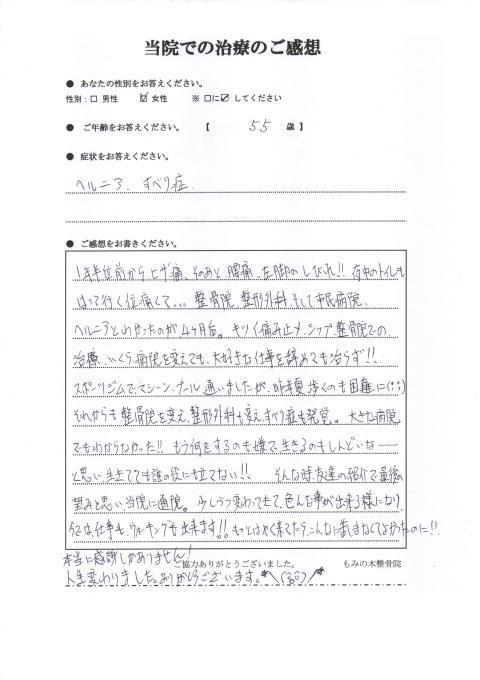 当院での治療のご感想
● あなたの性別をお答えください。
性別：□ 男性 ☑ 女性 ※ □に☑ してください
● ご年齢をお答えください。 【 55 歳 】
● 症状をお答えください。
ヘルニア、すべり症
● ご感想をお書きください。
1年半位前からヒザ痛、そのあと、腰痛、左脚のしびれ!! 夜中のトイレも
はって行く位痛くて… 整骨院、整形外科、そして市民病院、
ヘルニアとわかったのが4ヶ月后。キツイ痛み止メ、シップ、整骨院での
治療、いくら病院を変えても、大好きな仕事を辞めても治らず!!
スポーツジムで、マシーン、プール通いましたが、昨年夏歩くのも困難に(;;)
それからも整骨院を変え、整形外科も変え、すべり症も発覚。大きな病院
でもわからなかった!! もう何をするのも嫌で、生きるのもしんどいなー
と思い、生きてても誰の役にも立てない!! そんな時、友達の紹介で最後の
望みと思い当院に通院。少しづつ変わってきて、色んな事が出来る様になり
今では、仕事も、ウォーキングも出来ます!! もっとはやく来てたら、こんなに悩まなくてよかったのに!!
本当に感謝しかありません!
ご協力ありがとうございました。 もみの木整骨院
人生変わりました。ありがとうございます。